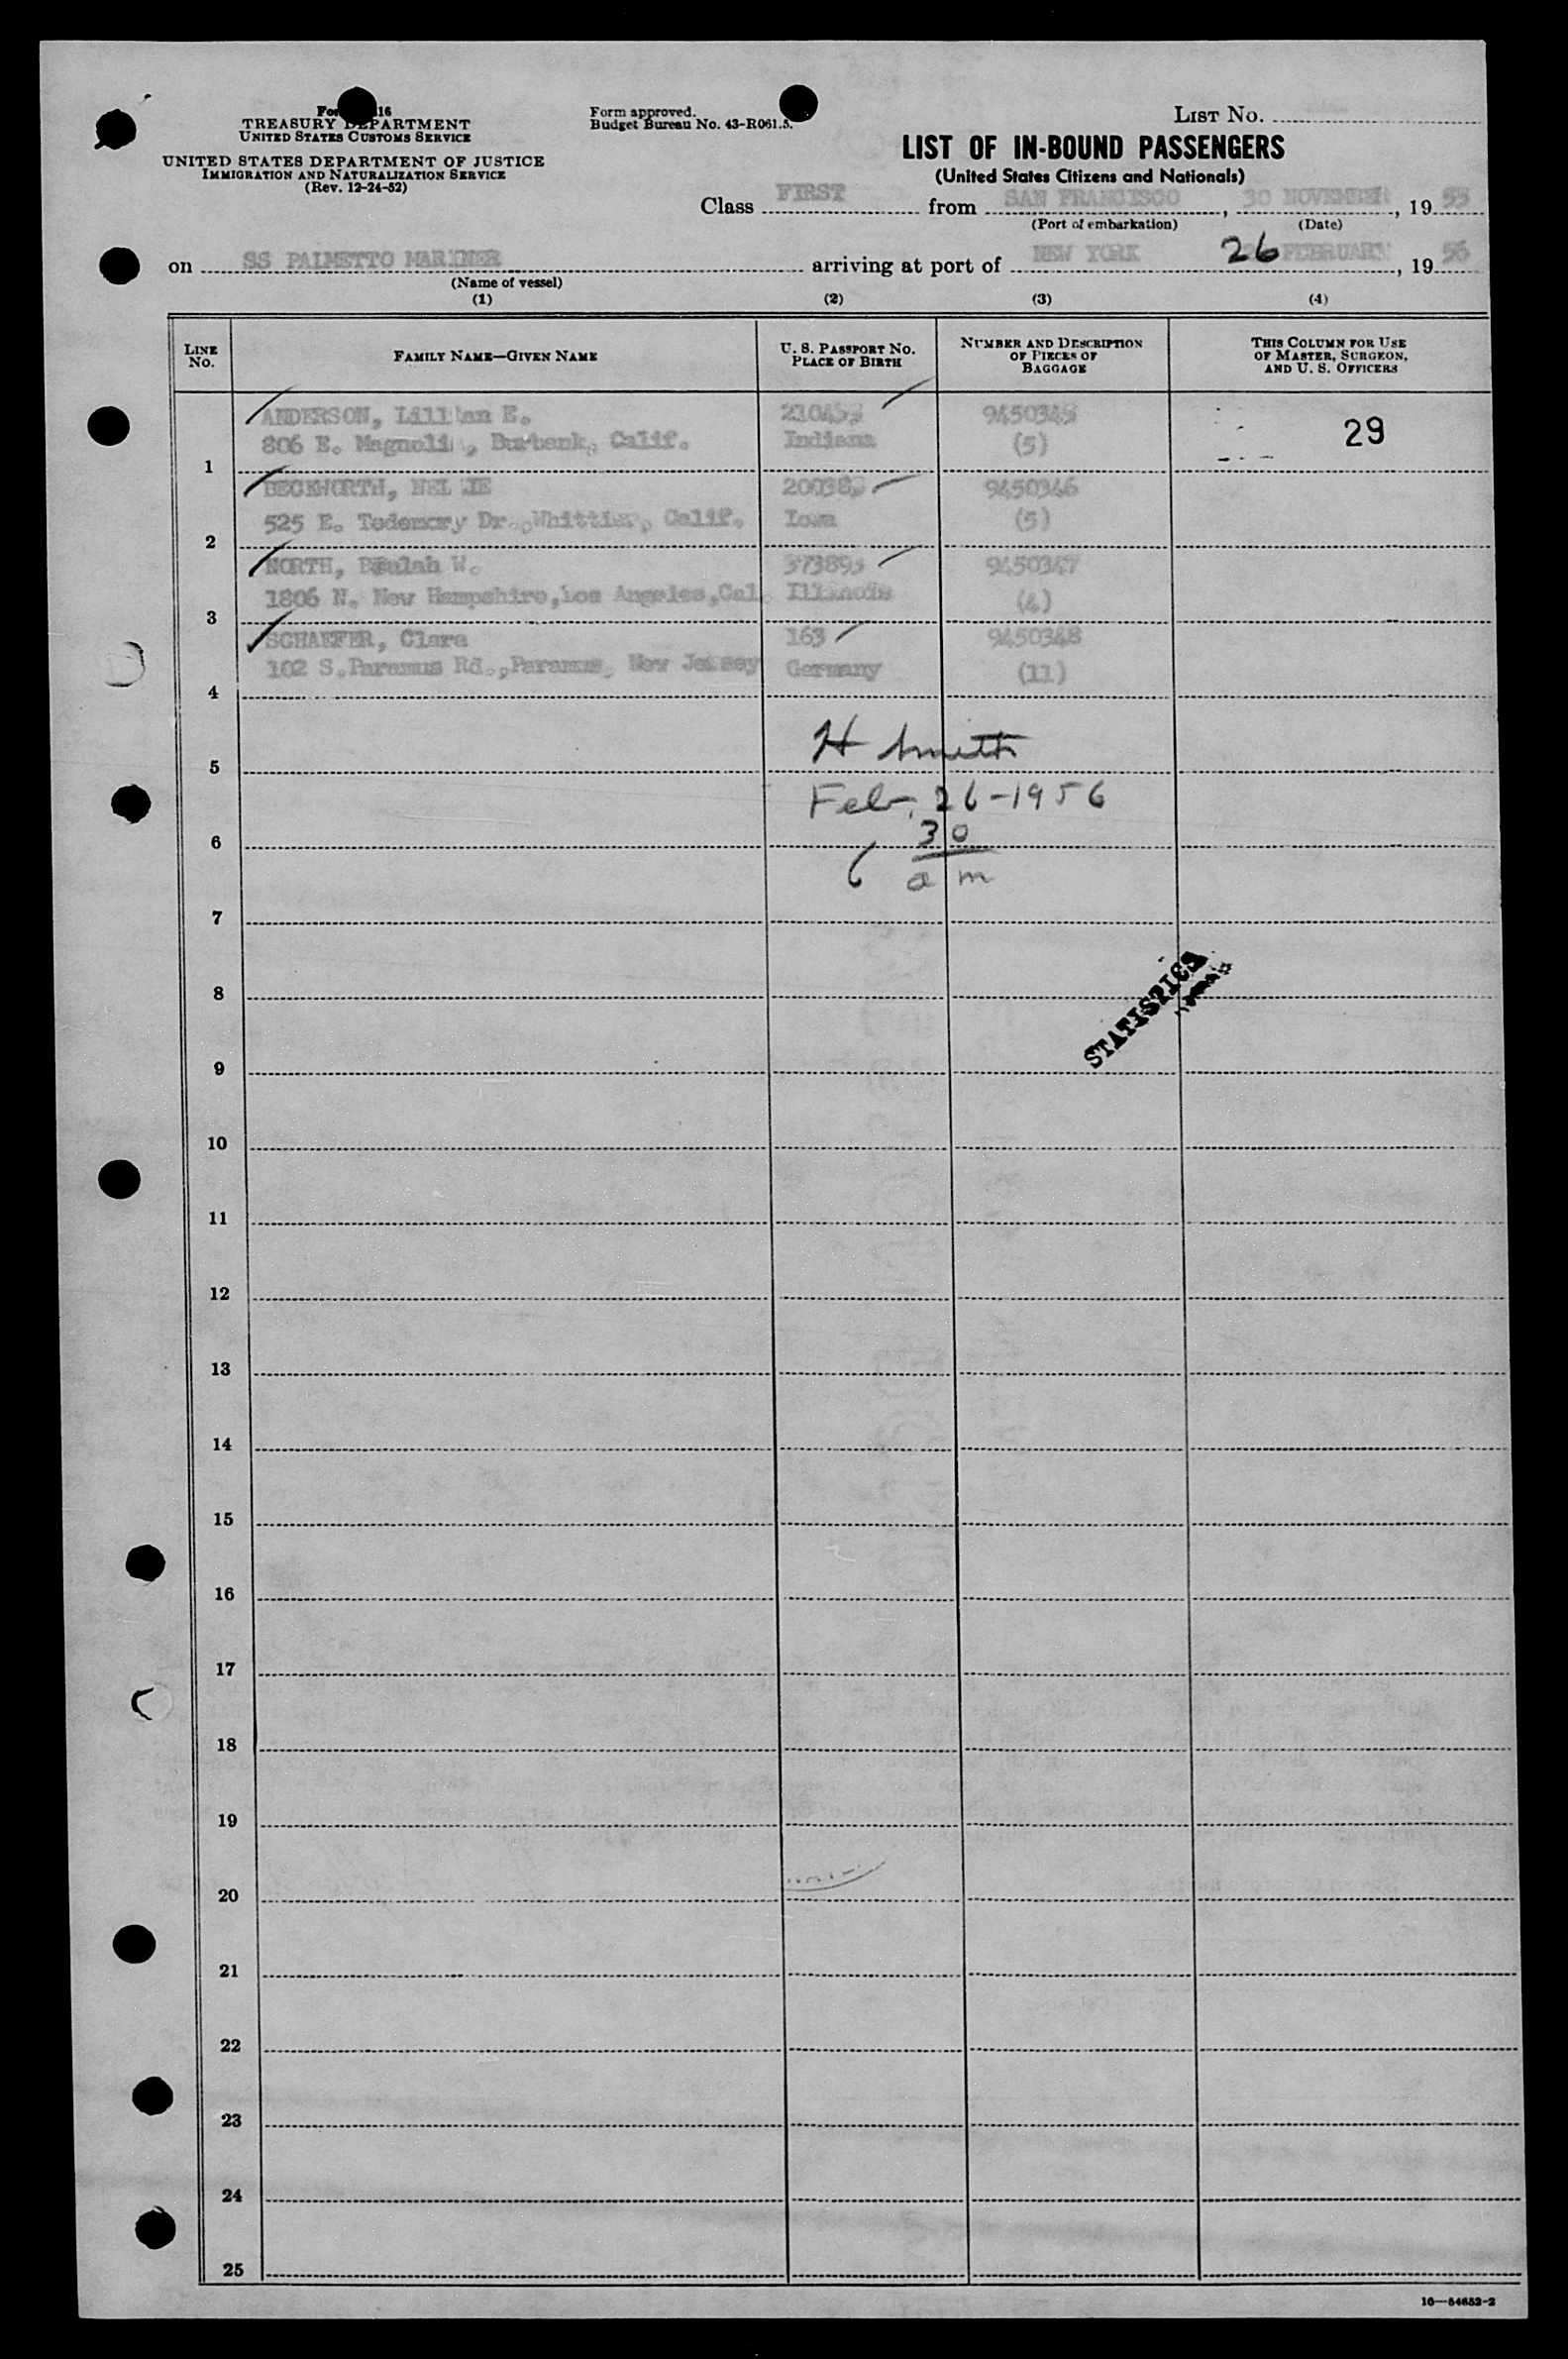 TREASURY DEPARTMENT
UNITED STATES CUSTOMS SERVICE
UNITED STATES DEPARTMENT OF JUSTICE
IMMIGRATION AND NATURALIZATION SERVICE
(Rev. 12-24-52)
Form approved.
Budget Bureau No. 43-R061.5.
LIST No.
LIST OF IN-BOUND PASSENGERS
(United States Citizens and Nationals)
Class FIRST from SAN FRANCISCO, 30 NOVEMBER, 1955
(Port of embarkation) (Date)
on SS PALMETTO MARINER arriving at port of NEW YORK 26 FEBRUARY, 1956
(Name of vessel)
(1) (2) (3) (4)
LINE No. FAMILY NAME—GIVEN NAME U. S. PASSPORT No. PLACE OF BIRTH NUMBER AND DESCRIPTION OF PIECES OF BAGGAGE THIS COLUMN FOR USE OF MASTER, SURGEON, AND U. S. OFFICERS
ANDERSON, Lillian E. 29
806 E. Burbank, Calif. Indiana (5)
1
BECKWORTH, NELLIE 9450346
525 E. Dr., Whittier, Calif. Iowa (5)
2
NORTH, Beulah W. 9450347
1806 N. New Hampshire, Los Angeles, Cal Illinois (4)
3
SCHAEFER, Clara 163 9450348
102 S. Paramus Rd., Paramus, New Jersey Germany (11)
4
H Smith
5
Feb. 26-1956
6 30
am
6
7
8
STATISTICS
9
10
11
12
13
14
15
16
17
18
19
20
21
22
23
24
25
16—54652-2